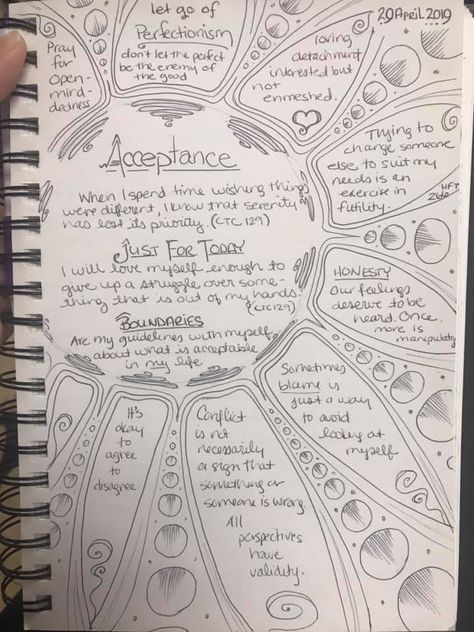 29 April 2019
Pray
for
Open-
mind-
dedness
let go of
Perfectionism
don't let the perfect
be the enemy of
the good
loving
detachment
interested but
not
enmeshed.
Trying to
change someone
else to suit my
needs is an
exercise in
futility.
HFT
Acceptance
When I spend time wishing things
were different, I know that serenity
has lost its priority. (CTC 129)
JUST FOR TODAY
I will love myself enough to
give up a struggle over some-
thing that is out of my hands.
(CTC129)
BOUNDARIES
Are my guidelines with myself
about what is acceptable
in my life
HONESTY
Our feelings
deserve to be
heard. Once.
more is
manipulatn
Sometimes
blame is
just a way
to avoid
looking at
myself
Conflict
is not
necessarily
a sign that
something or
someone is wrong.
All
perspectives
have
validity.
It's
okay
to
agree
to
disagree